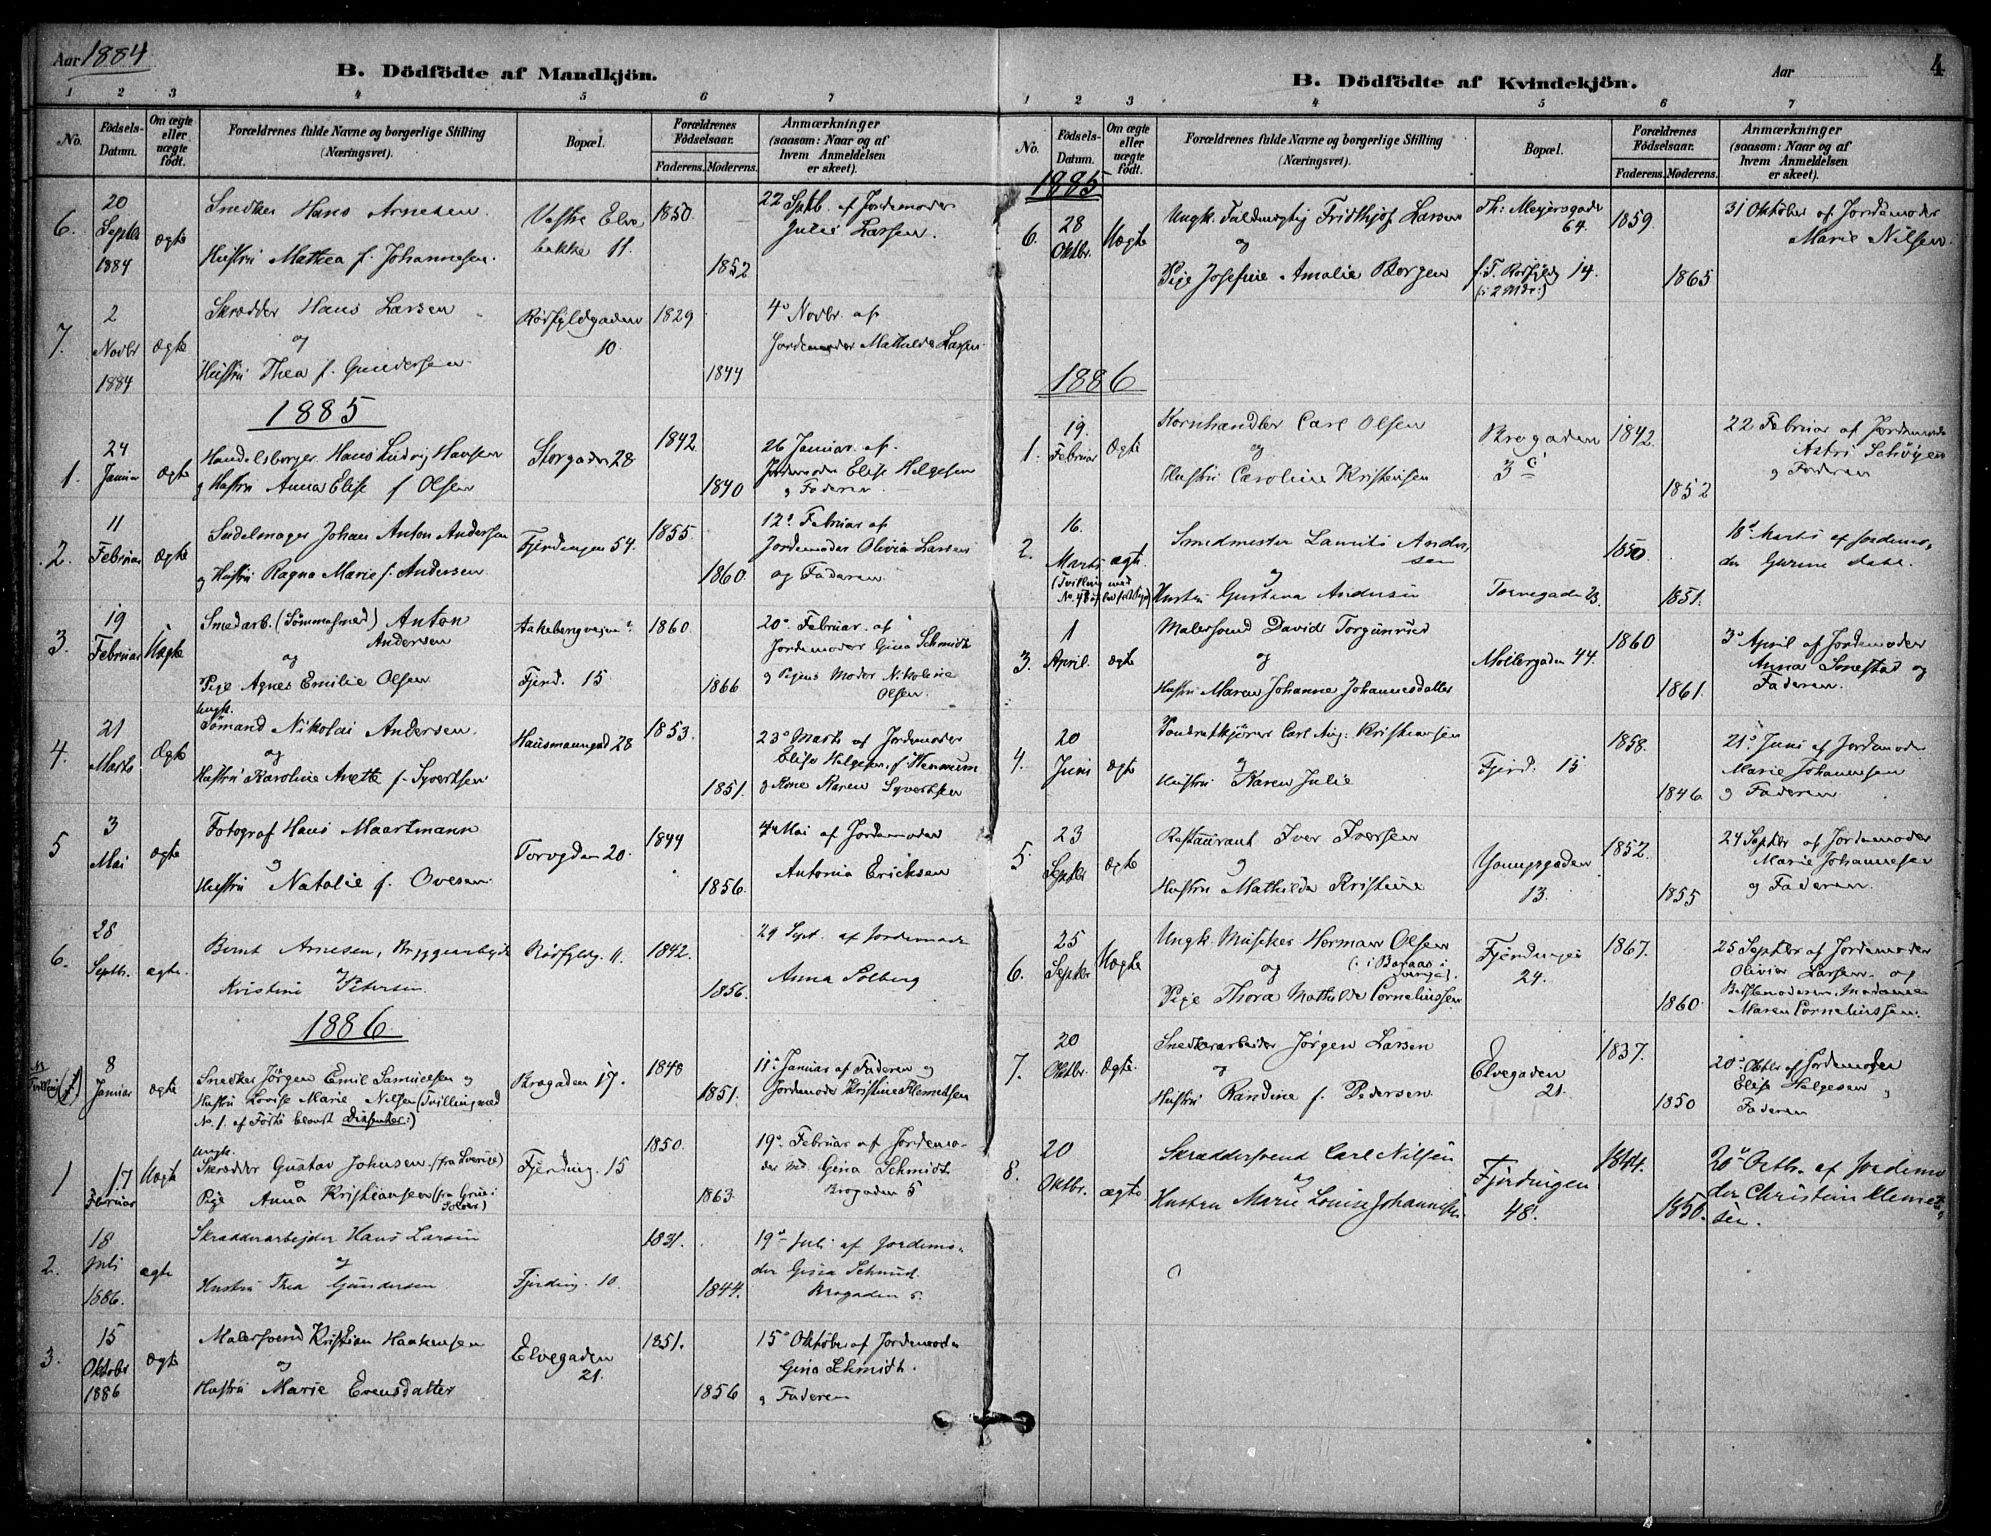 Aar 1884
B. Dödfödte af Mandkjön.
1 2 3 4 5 6 7
No.
Födsels-Datum.
Om ægte eller uægte födt.
Forældrenes fulde Navne og borgerlige Stilling
(Næringsvei).
Bopæl.
Forældrenes Födselsaar.
Faderens. Moderens.
Anmærkninger
(saasom: Naar og af
hvem Anmeldelsen
er skeet).
6. 20 Septbr 1884 ægte
Snedker Hans Arnesen.
Hustru Mathea f. Johannesen.
Vestre Elvebakke 11.
1850. 1852
22 Septb. af Jordemoder
Julie Larsen.
7. 2 Novbr 1884 Ægte
Skrædder Hans Larsen
og
Hustru Thea f. Gundersen
Rødfyldgaden 10.
1829 1844
4de Novbr. af
Jordemoder Mathilde Larsen
1885
1. 24 Januar Ægte
Handelsborger Hans Ludvig Hansen
og Hustru Anna Elise f Olsen
Storgaden 28
1842. 1840
26 Januar af
Jordemoder Elise Helgesen
og Faderen
2. 11 Februar Ægte
Sadelmager Johan Anton Andersen
og Hustru Ragna Marie f. Andersen
Fjerdingen 54.
1855 1860.
12te Februar af
Jordemoder Olivia Larsen
og Faderen
3. 19 Februar Uægte
Smedarb. (Sømmasmed) Anton
Andersen
og
Pige Agnes Emilie Olsen
Aakebergveien
Fjerd. 15
1860. 1866
20de Februar af
Jordemoder Gina Schmidt
og Pigens Moder Nikoline
Olsen.
4. 21 Marts Ægte
Ungk.
Sømand Nikolai Andersen
og
Hustru Karoline Anette f. Syvertsen
Hausmannsgd 28
1853. 1851.
23de Marts af Jordemoder
Elise Helgesen f
og Kone Karen Syvertsen
5 3 Mai ægte
Fotograf Hans Maartmann
og
Hustru Natalie f. Ovesen
Torvgden 20.
1844 1856.
4de Mai af Jordemoder
Antonia Ericksen
6. 28 Septb. ægte.
Bernt Arnesen, Bryggearbeider
og
Kristine Petersen
Rødfyldg. 11.
1842. 1856.
29 Sept. af Jordemoder
Anna Solberg
1886
Tvilling 8 Januar ægte
Snedker Jørgen Emil Samuelsen og
Hustru Lovise Marie Nilsen (Tvilling med
No. 1. af Fødte blandt Dissenter:)
Brogaden 17.
1848 1851.
11te Januar af Faderen og
Jordemoder Kristine Klemetsen
1 17 Februar Uægte
Ungk.
Skrædder Gustav Johnsen (fra Sverige)
og
Pige Anna Kristiansen (fra Grue i
Solør)
Fjerding. 15
1850. 1863.
19de Februar af Jordemo-
der Gina Schmidt
Brogaden 5
2. 18 Juli 1886. ægte
Skrædderarbejder Hans Larsen
og
Hustru Thea Gundersen
Fjerding. 10.
1831. 1844.
19de Juli af Jordemo-
der Gina Schmid
Brogaden 5.
3. 15 Oktober 1886 Ægte
Malersvend Kristian Haakensen
og
Hustru Marie Evensdatter
Elvegaden 21.
1851. 1856
15de Oktober af Jordemoder
Gina Schmidt.
og Faderen
B. Dödfödte af Kvindekjön.
Aar
4
1 2 3 4 5 6 7
No.
Födsels-Datum.
Om ægte eller uægte födt.
Forældrenes fulde Navne og borgerlige Stilling
(Næringsvei).
Bopæl.
Forældrenes Födselsaar.
Faderens. Moderens.
Anmærkninger
(saasom: Naar og af
hvem Anmeldelsen
er skeet).
1885
6. 28 Oktbr. Uægte
Ungk. Fuldmægtig Fridthjof Larsen
og
Pige Josefine Amalie Borgen
Th: Meyersgade 64.
f. T. Rødfyldg 14.
(i 2 Mdr:)
1859. 1865
31 Oktober af Jordemoder
Marie Nilsen.
1886
1. 19. Februar Ægte
Kornhandler Carl Olsen
og
Hustru Caroline Kristensen
Brogaden 3 c
1842. 1852
22 Februar af Jordemoder
Astri Schøyen
og Faderen
2. 16. Marts ægte
(Tvilling med
Smedmester Lauritz Ander-
sen
og
Hustru Gustava Andersen
Torvegaden 23.
1850. 1851.
18de Marts af Jordemo-
der Gurine
3. 1 April. ægte
Malersvend David Torgunrud
og
Hustru Maren Johanne Johannesdatter
Møllergaden 44.
1860 1861.
3de April af Jordemoder
Anna Snestad og
Faderen.
4. 20 Juni Ægte
Vandratkjører Carl Aug: Kristiansen
og
Hustru Karen Julie
Fjerd. 15
1858. 1846.
21de Juni af Jordemoder
Marie Johannesen
og Faderen.
5. 23 Septbr Ægte
Restaurant Iver Iversen
og
Hustru Mathilde Kristine
Youngsgaden 13.
1852. 1855
24 Septbr af Jordemoder
Marie Johannesen
og Faderen.
6. 25 Septbr Uægte
Ungk. Musiker Herman Olsen
(: i Boraas i
Sverige).
og
Pige Thora Mathilde Corneliussen
Fjerdingen 24.
1867. 1860.
25 Septbr af Jordemoder
Olivia Larsen og
Bedstemoderen, Madame
Maren Corneliussen.
7. 20 Oktbr. Ægte.
Snedkerarbeider Jørgen Larsen
og
Hustru Randine f. Pedersen
Elvegaden 21.
1837. 1850
20de Oktbr af Jordemoder
Elise Helgesen
Faderen
8. 20 Oktbr. ægte
Skræddersvend Carl Nilsen
og
Hustru Marie Louise Johannesen.
Fjerdingen 48.
1844. 1850.
20de Octbr. af Jordemo
der Christine Klemet-
sen.